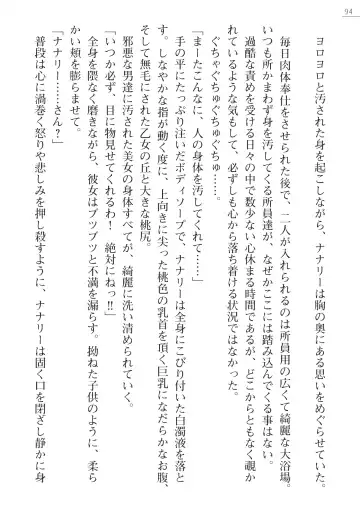 94
ヨロヨロと汚された身を起こしながら、ナナリーは胸の奥にある思いをめぐらせていた。
毎日肉体奉仕をさせられた後で、二人が入れられるのは所員用の広くて綺麗な大浴場。
いつも所かまわず身を汚してくる所員達が、なぜかここには踏み込んでくる事はない。
過酷な責めを受ける日々の中で数少ない心休まる時間であるが、どこからともなく覗か
れているような気もして、必ずしも心から落ち着ける状況ではなかった。
ぐちゃぐちゅぐちゅぐちゅ……。
「まーたこんなに、人の身体を汚してくれて……」
手の平にたっぷり注いだボディソープで、ナナリーは全身にこびり付いた白濁液を落と
す。しなやかな指が動く度に、上向きに尖った桃色の乳首を頂く巨乳になだらかなお腹、
そして無毛にされた乙女の丘と大きな桃尻。
邪悪な男達に汚された美女の身体すべてが、綺麗に洗い清められていく。
「いつか必ず、目に物見せてくれるわ！　絶対にねっ‼」
全身を隈なく磨きながら、彼女はブツブツと不満を漏らす。拗ねた子供のように、柔ら
かい頬を膨らませて。
「ナナリー……さん？」
普段は心に渦巻く怒りや悲しみを押し殺すように、ナナリーは固く口を閉ざし静かに身